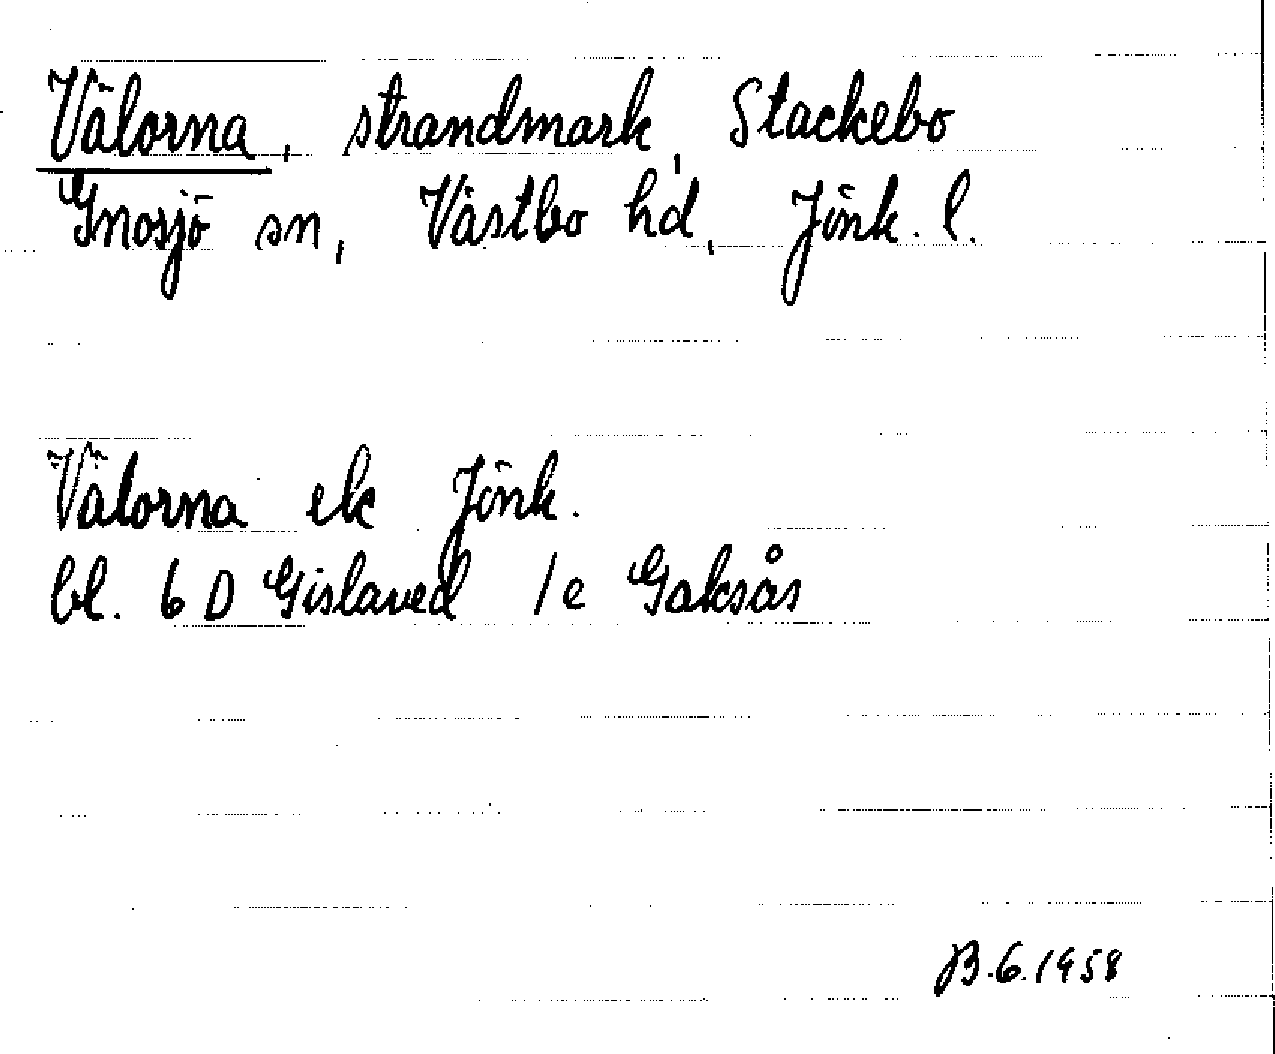 Välorna, strandmark, Stackebo
Gnosjö sn, Västbo hd, Jönk. l.
Välorna ek Jönk.
bl. 6 D Gislaved 1e Gaksås
B.G.1958